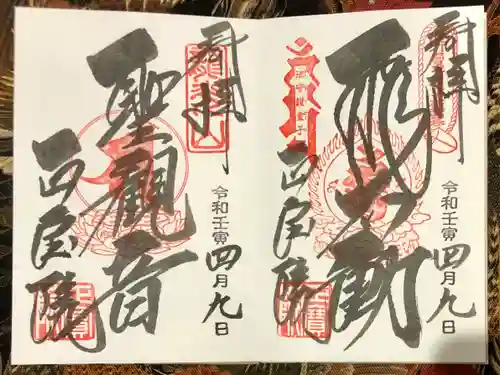 奉拝
令和壬寅四月九日
飛不動
正宝院
奉拝
龍光山
令和壬寅四月九日
聖観音
正宝院